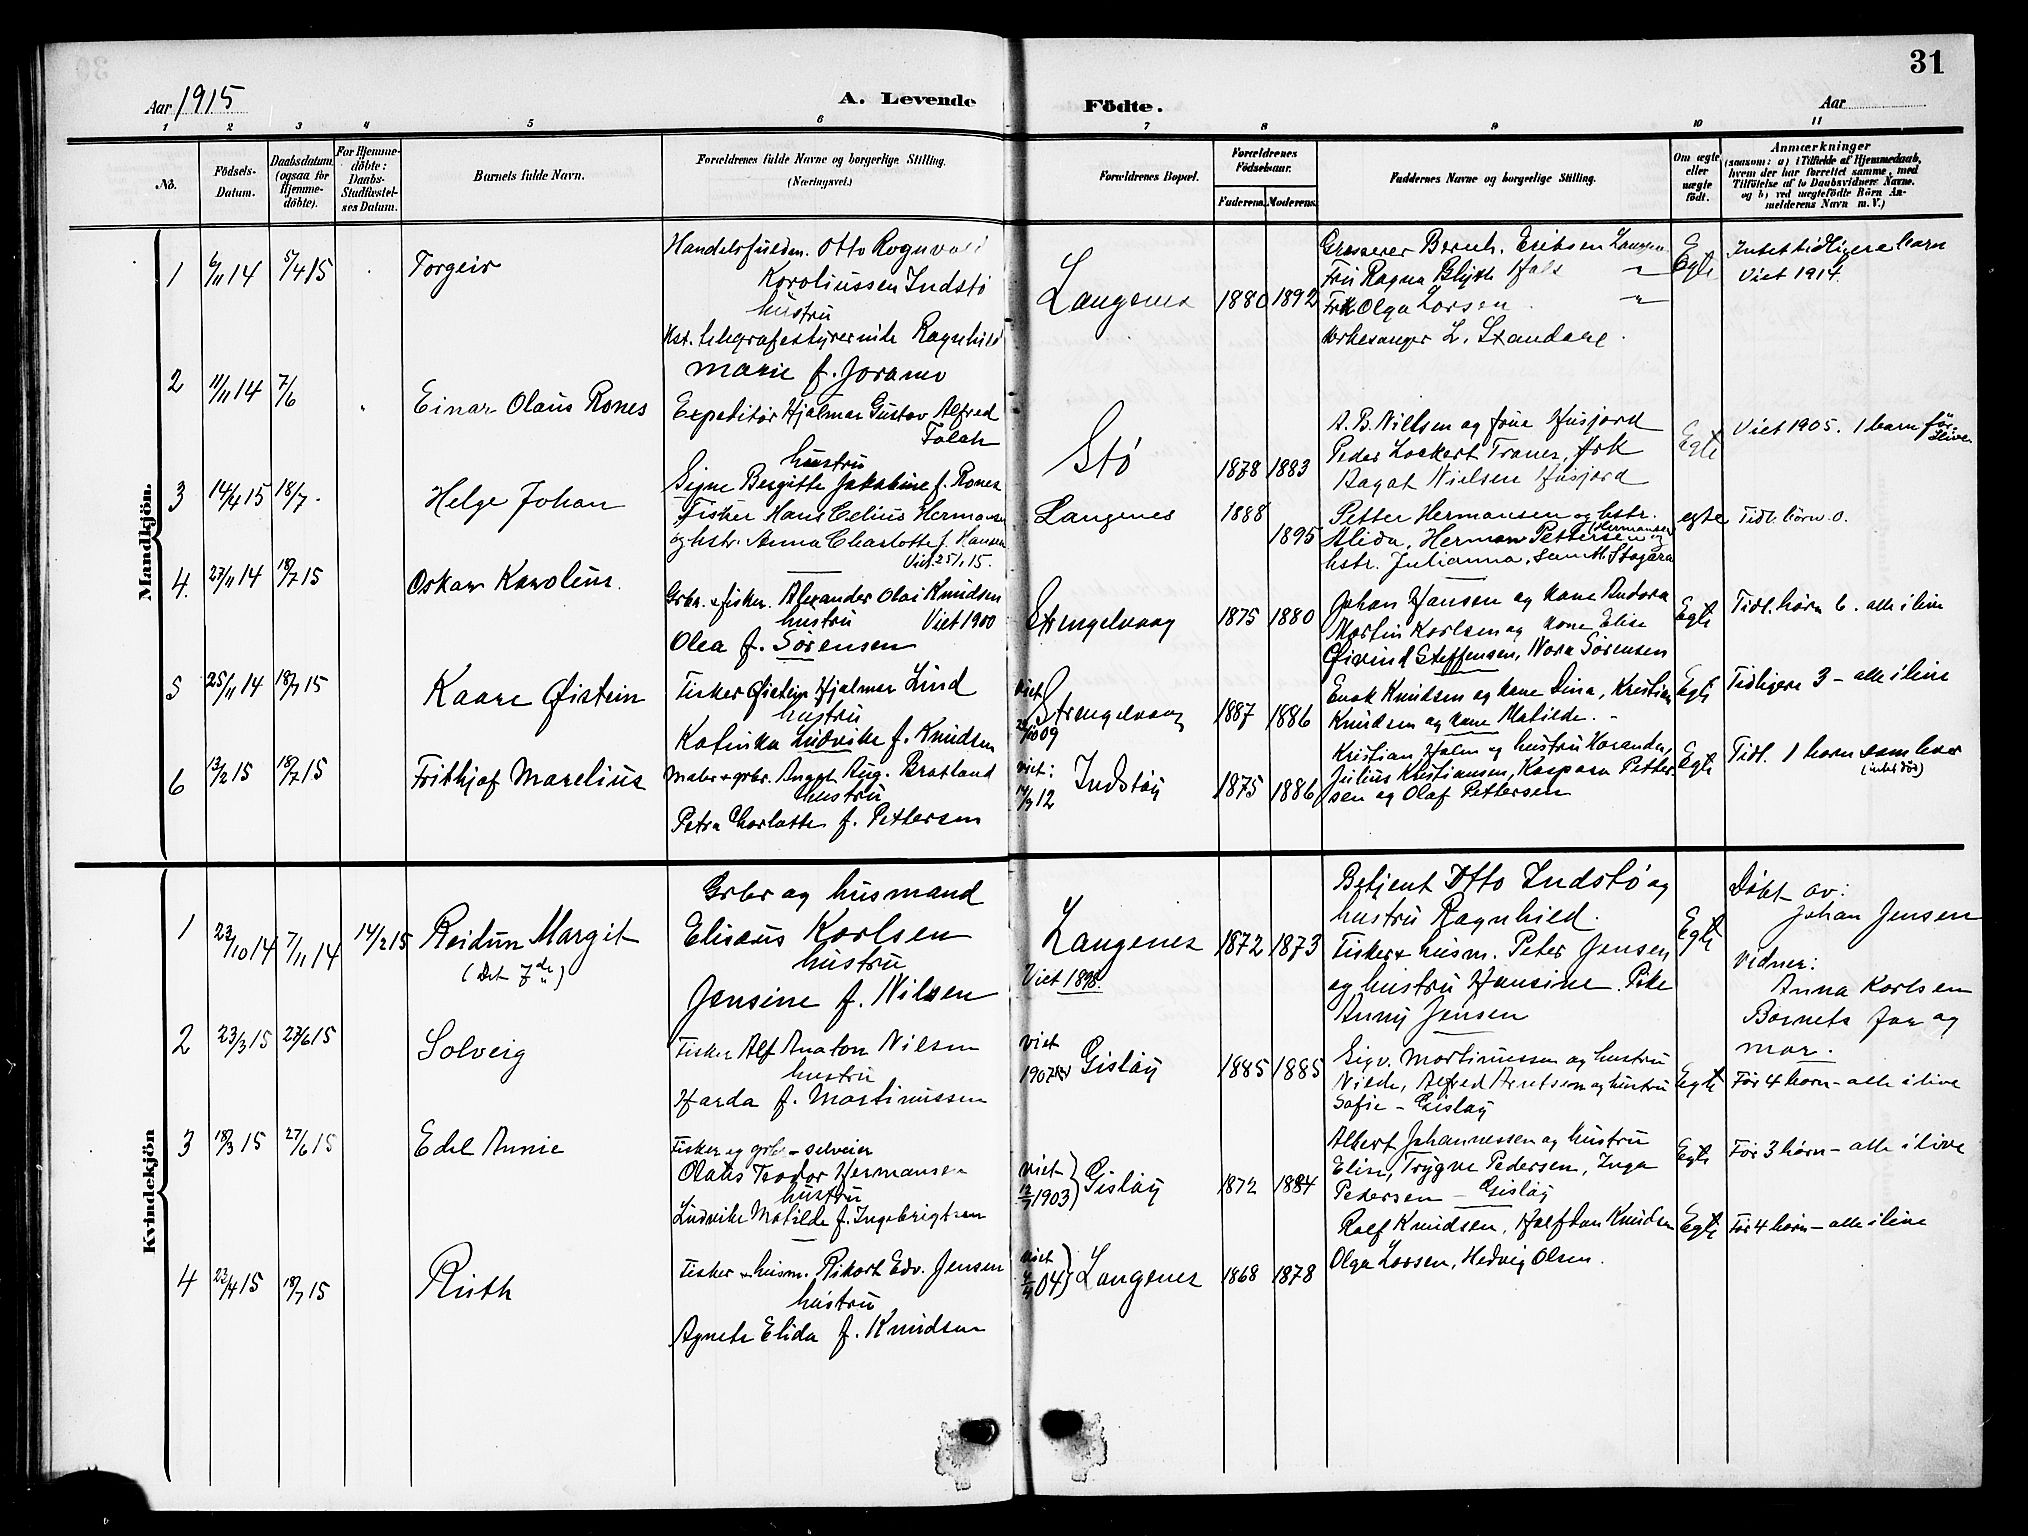 31
Aar 1915
A. Levende
Födte.
Aar
1 2 3 4 5 6 7 8 9 10 11
No.
Födsels-Datum.
Daabsdatum (ogsaa for Hjemme-döbte).
For Hjemme-döbte: Daabs-Stadfæstel-ses Datum.
Barnets fulde Navn.
Forældrenes fulde Navne og borgerlige Stilling.
(Næringsvei.)
Forældrenes Bopæl.
Forældrenes Födselsaar.
Faderens. Moderens.
Faddernes Navne og borgerlige Stilling.
Om ægte eller uægte födt.
Anmærkninger
(saasom: a) i Tilfælde af Hjemmedaab,
hvem der har forrettet samme, med
Tilföielse af to Daabsvidners Navne,
og b) ved uægtefödte Börn An-
melderens Navn m. V.)
Mandkjön.
1 6/11 14 5/4 15 Torgeir
Otto Rognvald
Karoliussen Indstø
hustru
Ragnhild
Marie f. Joramo
Langenes 1880 1892
Grosserer Bernh. Eriksen Langenes
Fru Ragna Blyth Hals "
Frk Olga Larsen "
Kirkesanger L. Standal.
Egte
Intet tidligere barn
Viet 1914.
2 11/11 14 7/6 Einar Olaus Rones
Expeditør Hjalmar Gustav Alfred
Falch
hustru
Signe Bergitte Jakobine f. Rones
Stø 1878 1883
A. B. Nilsen og frue Husjord
Peder Lockert Traner, frk
Dagot Nielsen Husjord
Egte
Viet 1905. 1 barn før
ilive
3 14/4 15 18/7 Helge Johan
Fisker Hans Celius Hermansen
og hstr. Anna Charlotte f. Hansen
Viet 25/1 15.
Langenes 1888 1895
Petter Hermansen og hstr.
Alida, Herman Pettersen (Hermansen) og
hstr. Julianna,
egte Tidl. børn 0.
4. 27/11 14 18/7 15 Oskar Karolius.
Grbr. & fisker. Alexander Olai Knudsen
hustru Viet 1900
Olea f. Sørensen
Strengelvaag 1875 1880
Johan Hansen og kone Andora
Martin Karlsen og kone Elise
Øivind Steffensen, Nora Sørensen
Egte Tidl. børn 6. alle ilive
5 25/11 14 18/7 15 Kaare Øistein
Fisker Øistein Hjalmar Lind
hustru
Katinka Ludvike f. Knudsen
viet 09
Strengelvaag 1887 1886
Enok Knudsen og kone Dina, Kristian
Knudsen og kone Matilde.
Egte Tidligere 3 - alle ilive
6 13/2 15 18/7 15 Frithjof Marelius
Maler & grbr. Aug. Bratland
hustru
Petra Charlotte f. Pettersen
viet: 14/9 12
Indstøy 1875 1886
Kristian Holm og hustru
Julius Kristiansen, Kaspara Petter-
sen og Olaf Pettersen
Egte Tidl. 1 barn som lever
(intet død)
Kvindekjön
1 23/10 14 7/11 14 14/2 15 Reidun Margit
(Det 7de)
Grbr og husmand
Elisæus Karlsen
hustru
Jensine f. Nilsen
Langenes 1872 1873
Viet 1898.
Betjent Otto Indstø og
hustru Ragnhild.
Fisker & husm. Peter Jensen
og hustru Hansine. Pike
Anny Jensen
Egte
Døbt av:
Johan Jensen
vidner:
Anna Karlsen
Barnets far og
mor.
2 23/3 15 27/6 15 Solveig
Fisker Alf Anaton Nilsen
hustru
Harda f. Martinussen
viet 1907
Gisløy 1885 1885
Sigv. Martinussen og hustru
Alfred Arntsen og hustru
Sofie - Gisløy
Egte Før 4 børn - alle ilive
3 18/3 15 27/6 15 Edel Annie
Fisker og grbr - selveier
Olaus Teodor Hermansen
hustru
Ludvike Matilde f. Ingebrigtsen
viet 1903
Gisløy 1872 1884
Albert Johannessen og hustru
Elise, Trygve Pedersen, Inga
Pedersen - Gisløy
Egte Før 3 børn - alle ilive
4 23/4 15 18/7 15 Ruth
Fisker & husm. Rikart Edv. Jensen
hustru
Agnete Elida f. Knudsen
viet 04
Langenes 1868 1878
Rolf Knudsen, Halfdan Knudsen
Olga Larsen, Hedvig Olsen.
Egte Før 4 børn - alle ilive